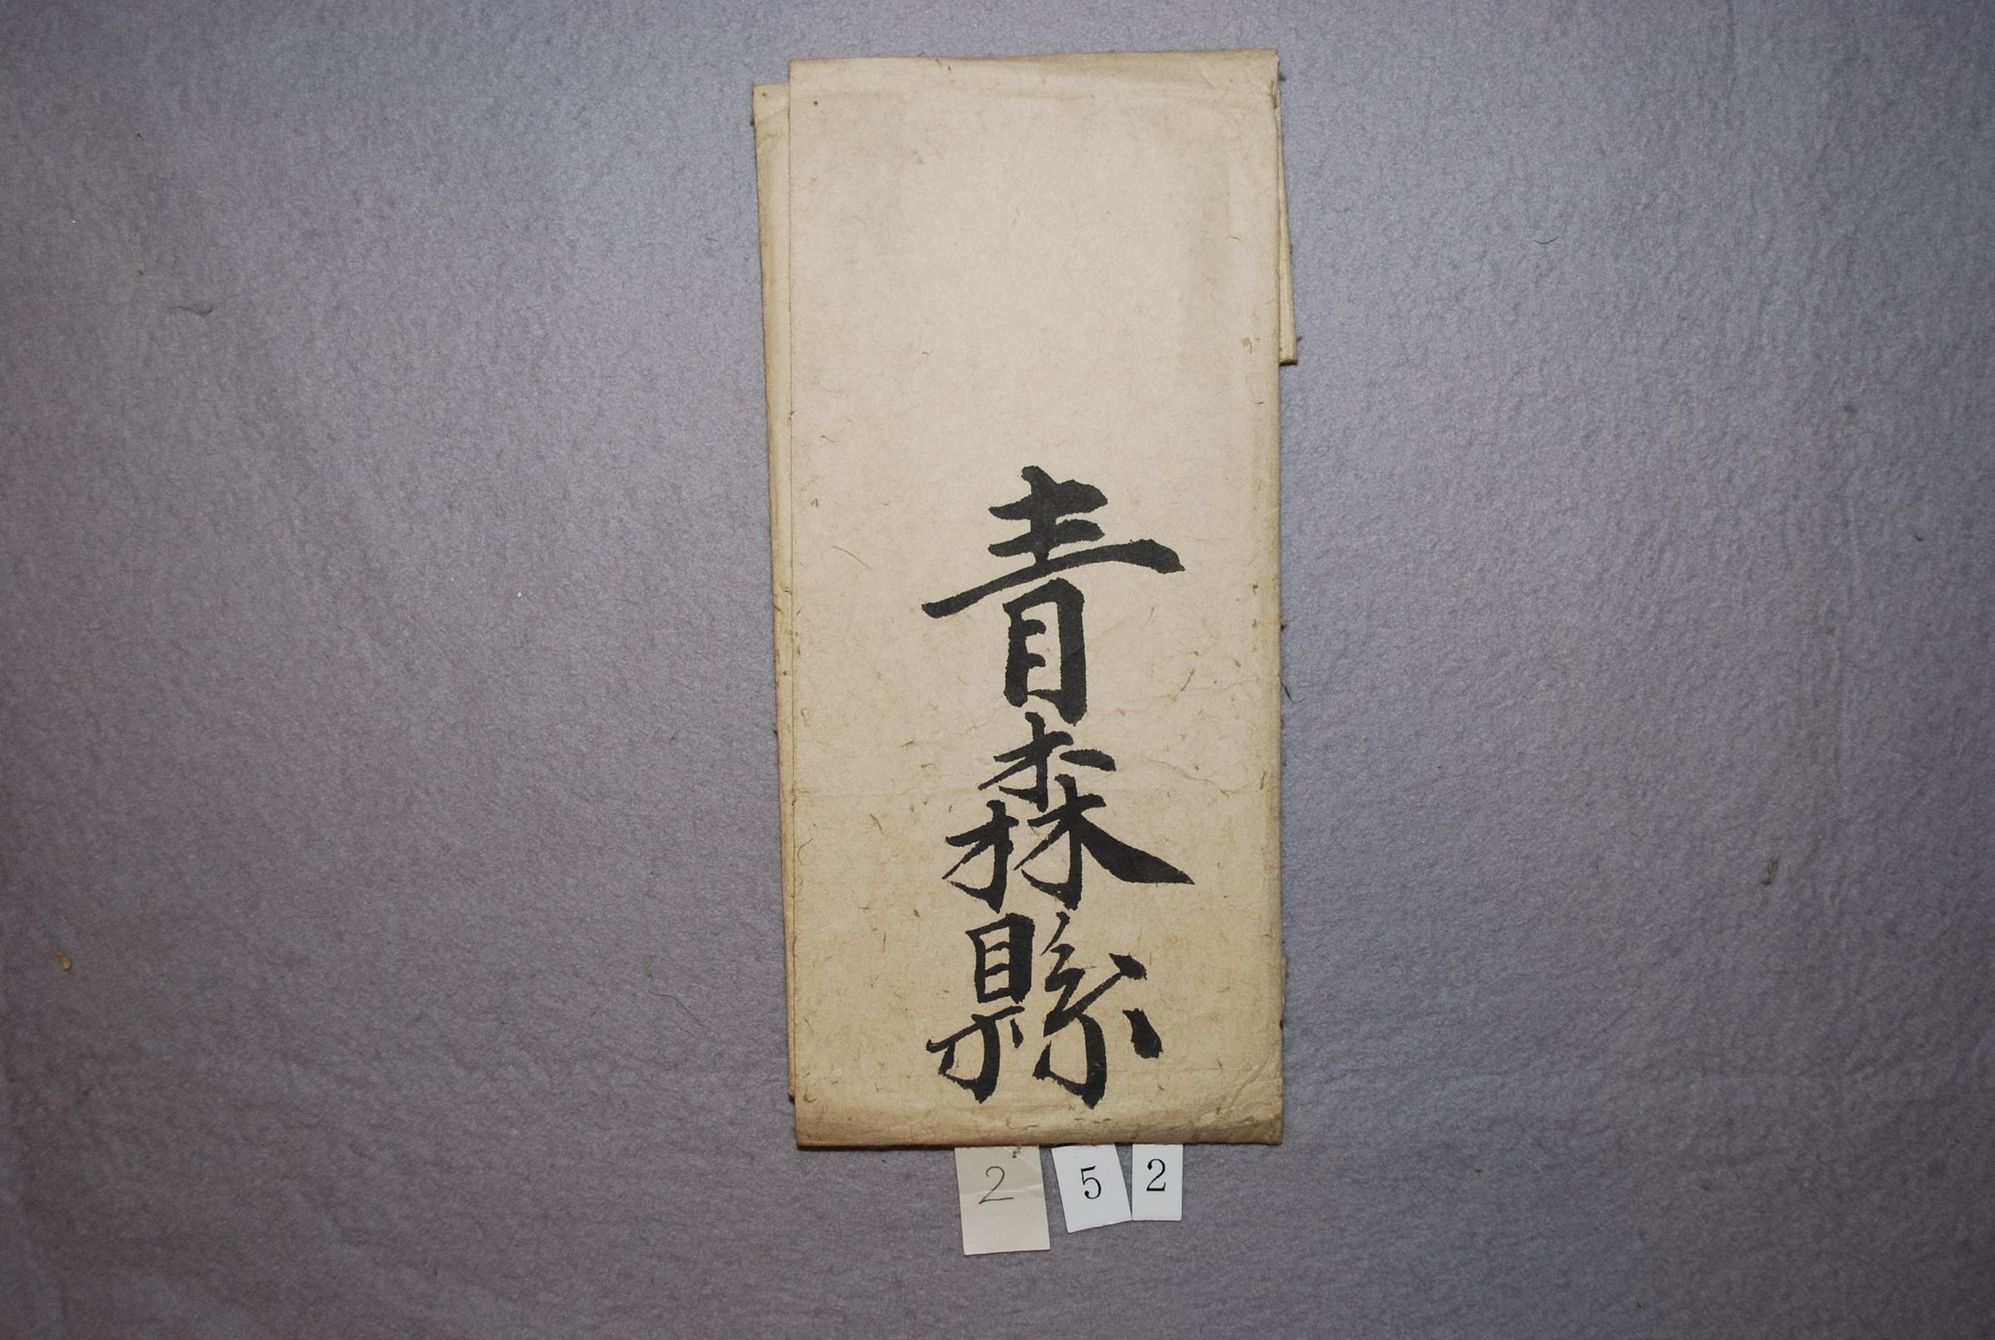 青森縣
2 5 2